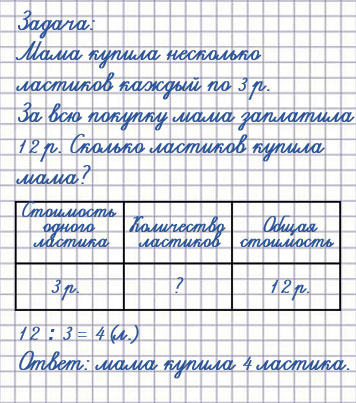 Задача:
Мама купила несколько
ластиков каждый по 3 р.
За всю покупку мама заплатила
12 р. Сколько ластиков купила
мама?
Стоимость одного ластика | Количество ластиков | Общая стоимость
3 р. | ? | 12 р.
12 : 3 = 4 (л.)
Ответ: мама купила 4 ластика.